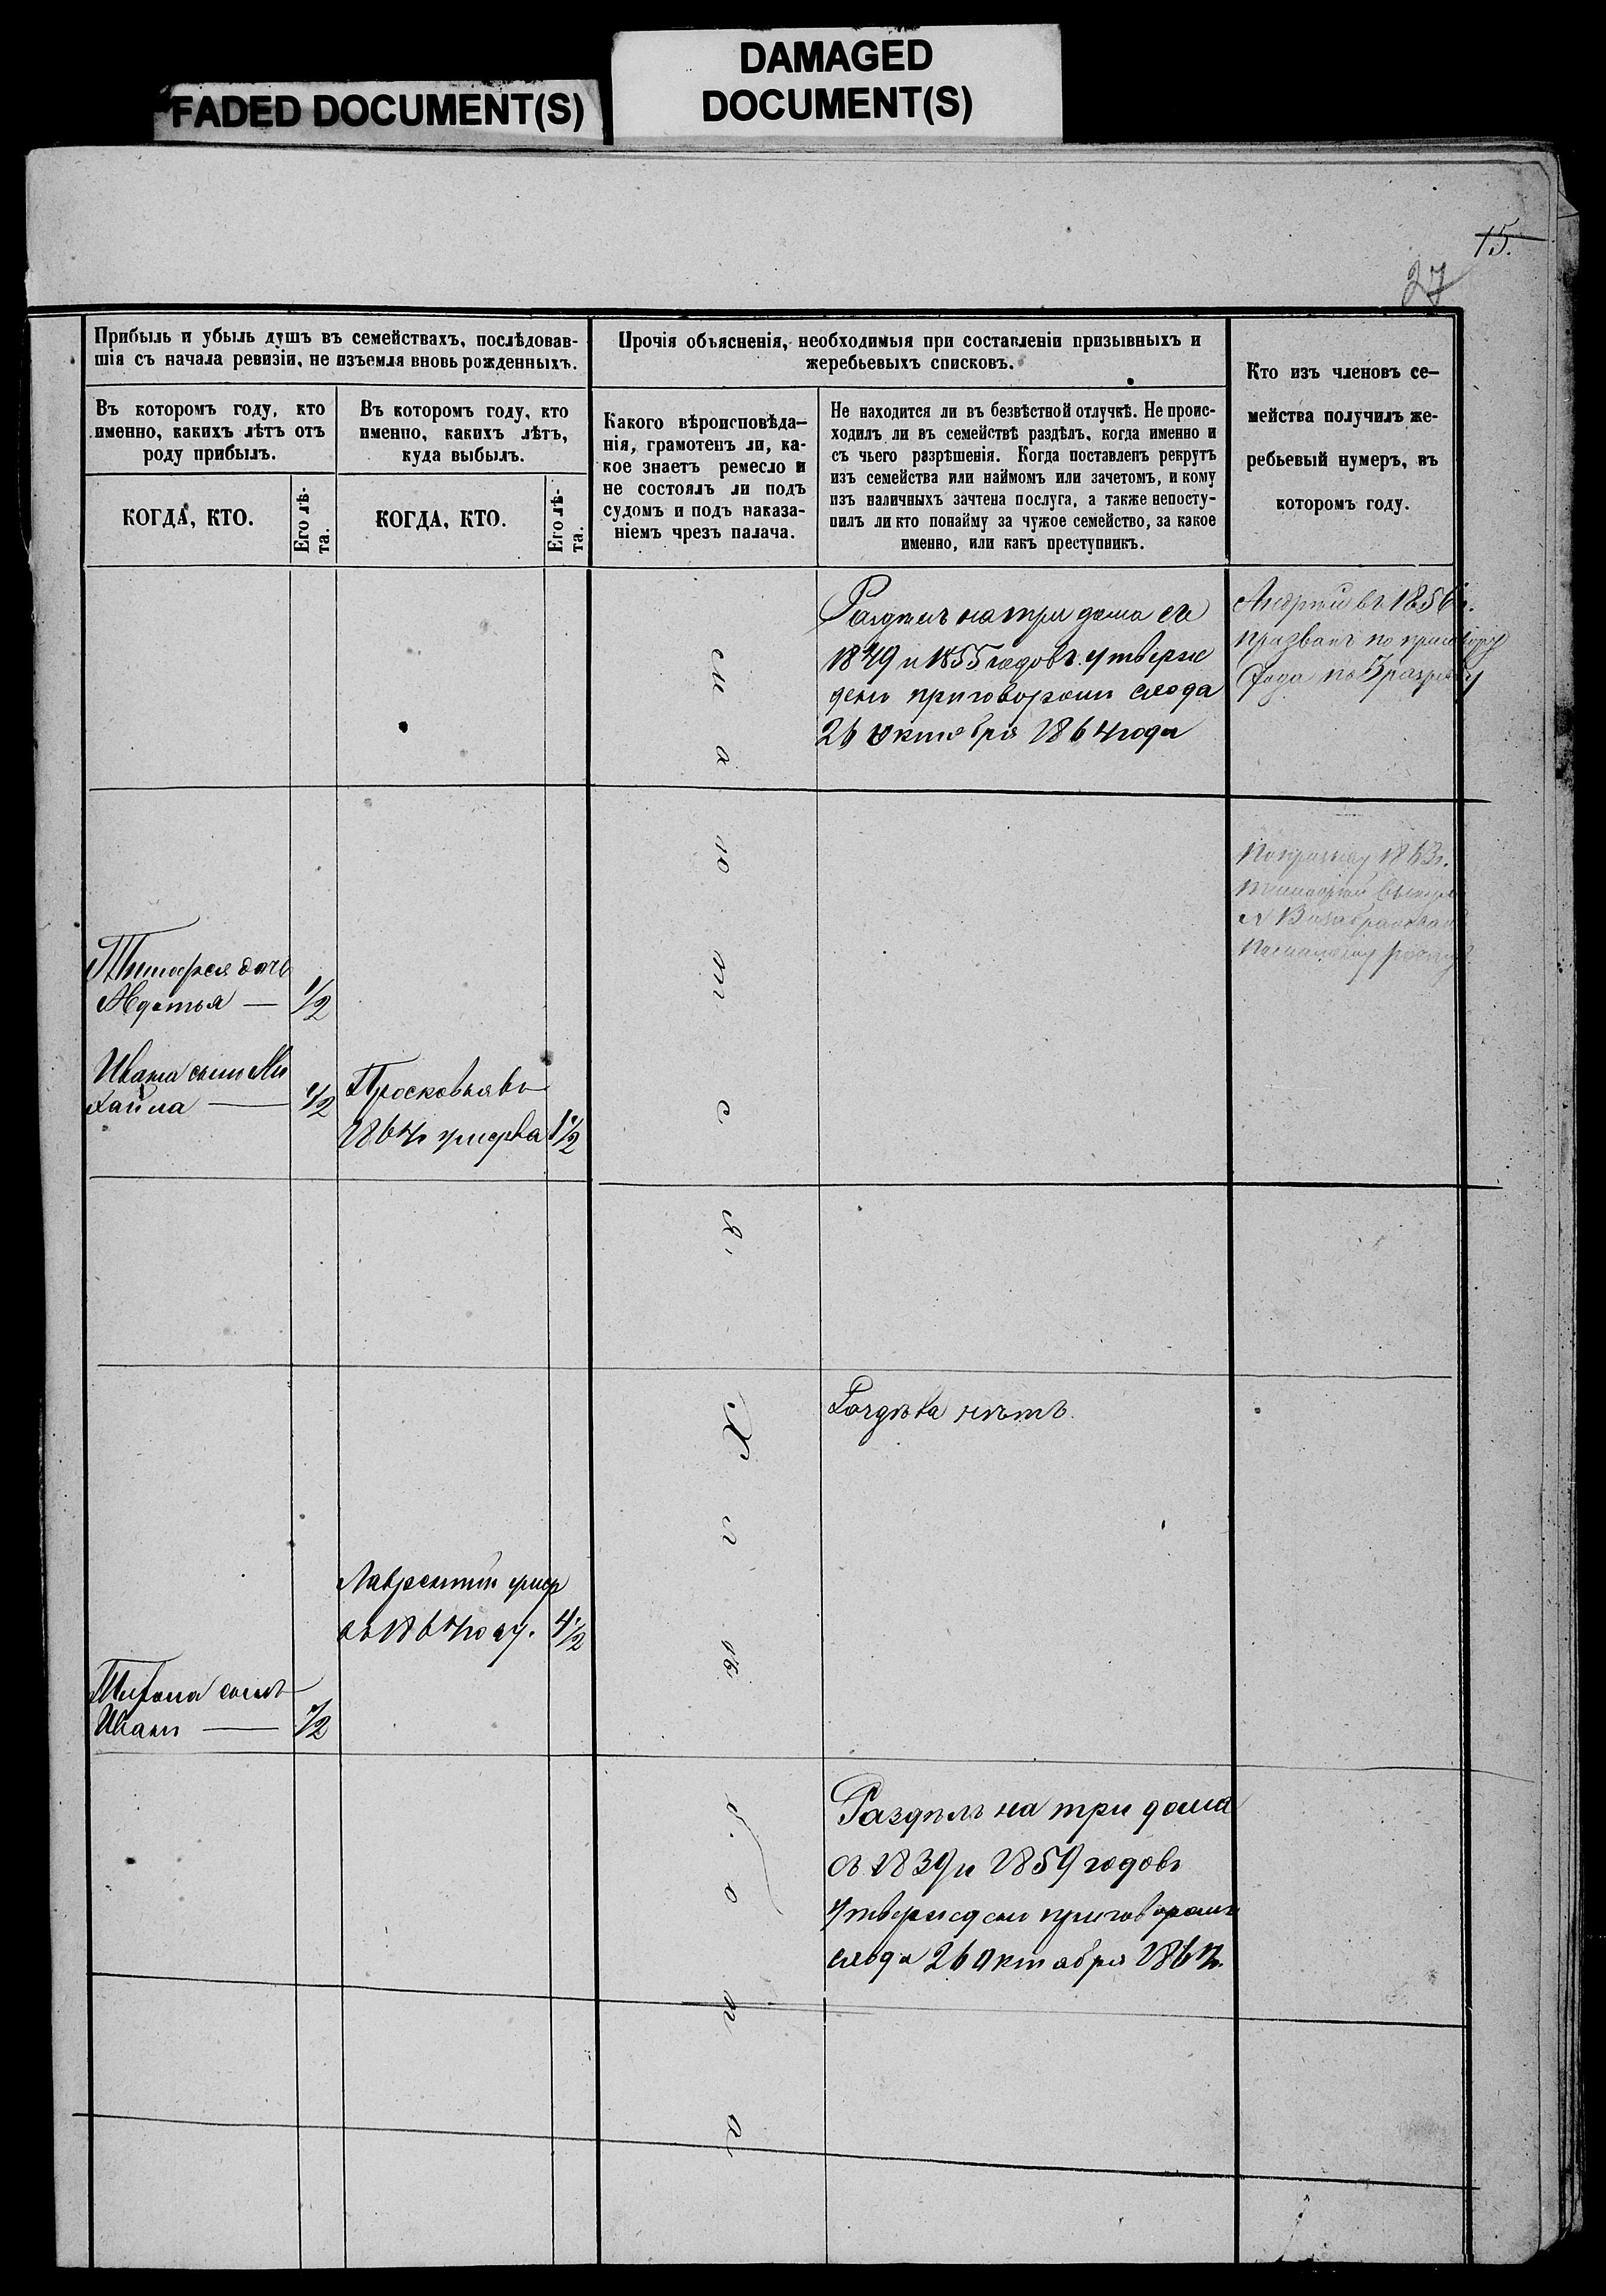 FADED DOCUMENT(S)
DAMAGED
DOCUMENT(S)
15.
27
Прибыль и убыль душъ въ семействахъ, послѣдовав-
шія съ начала ревизіи, не изъемля вновь рожденныхъ.
Въ которомъ году, кто
именно, какихъ лѣтъ отъ
роду прибылъ.
КОГДА, КТО.
Его лѣ-
та.
Въ которомъ году, кто
именно, какихъ лѣтъ,
куда выбылъ.
КОГДА, КТО.
Его лѣ-
та.
Прочія объясненія, необходимыя при составленіи призывныхъ и
жеребьевыхъ списковъ.
Какого вѣроисповѣда-
нія, грамотенъ ли, ка-
кое знаетъ ремесло и
не состоялъ ли подъ
судомъ и подъ наказа-
ніемъ чрезъ палача.
Не находится ли въ безвѣстной отлучкѣ. Не проис-
ходилъ ли въ семействѣ раздѣлъ, когда именно и
съ чьего разрѣшенія. Когда поставленъ рекрутъ
изъ семейства или наймомъ или зачетомъ, и кому
изъ наличныхъ зачтена послуга, а также непосту-
пилъ ли кто понайму за чужое семейство, за какое
именно, или какъ преступникъ.
Кто изъ членовъ се-
мейства получилъ же-
ребьевый нумеръ, въ
которомъ году.
Раздѣлъ на три дома съ
1849 и 1855 годовъ утверж
денъ приговоромъ схода
26 октября 1864 года
Андрей въ 1856 г.
призванъ по
по 3 разряду
1863 г.
дочь
Авдотья — 1/2
Ивана сынъ Ми
хаила — 1/2
Просковья въ
1864 г. умерла 1 1/2
Раздѣла нѣтъ.
Лаврентий умер
въ 1864 году. 4 1/2
сынъ
Иванъ — 1/2
Раздѣлъ на три дома
съ 1839 и 1859 годовъ
утвержденъ приговоромъ
схода 26 октября 1864 г.